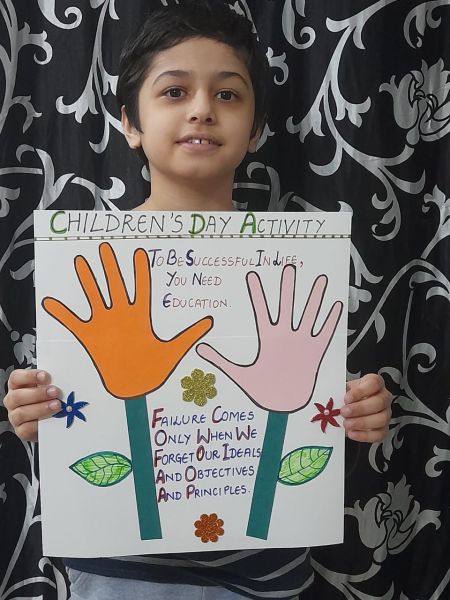 CHILDREN'S DAY ACTIVITY
TO BE SUCCESSFUL IN LIFE,
YOU NEED
EDUCATION.
FAILURE COMES
ONLY WHEN WE
FORGET OUR IDEALS
AND OBJECTIVES
AND PRINCIPLES.